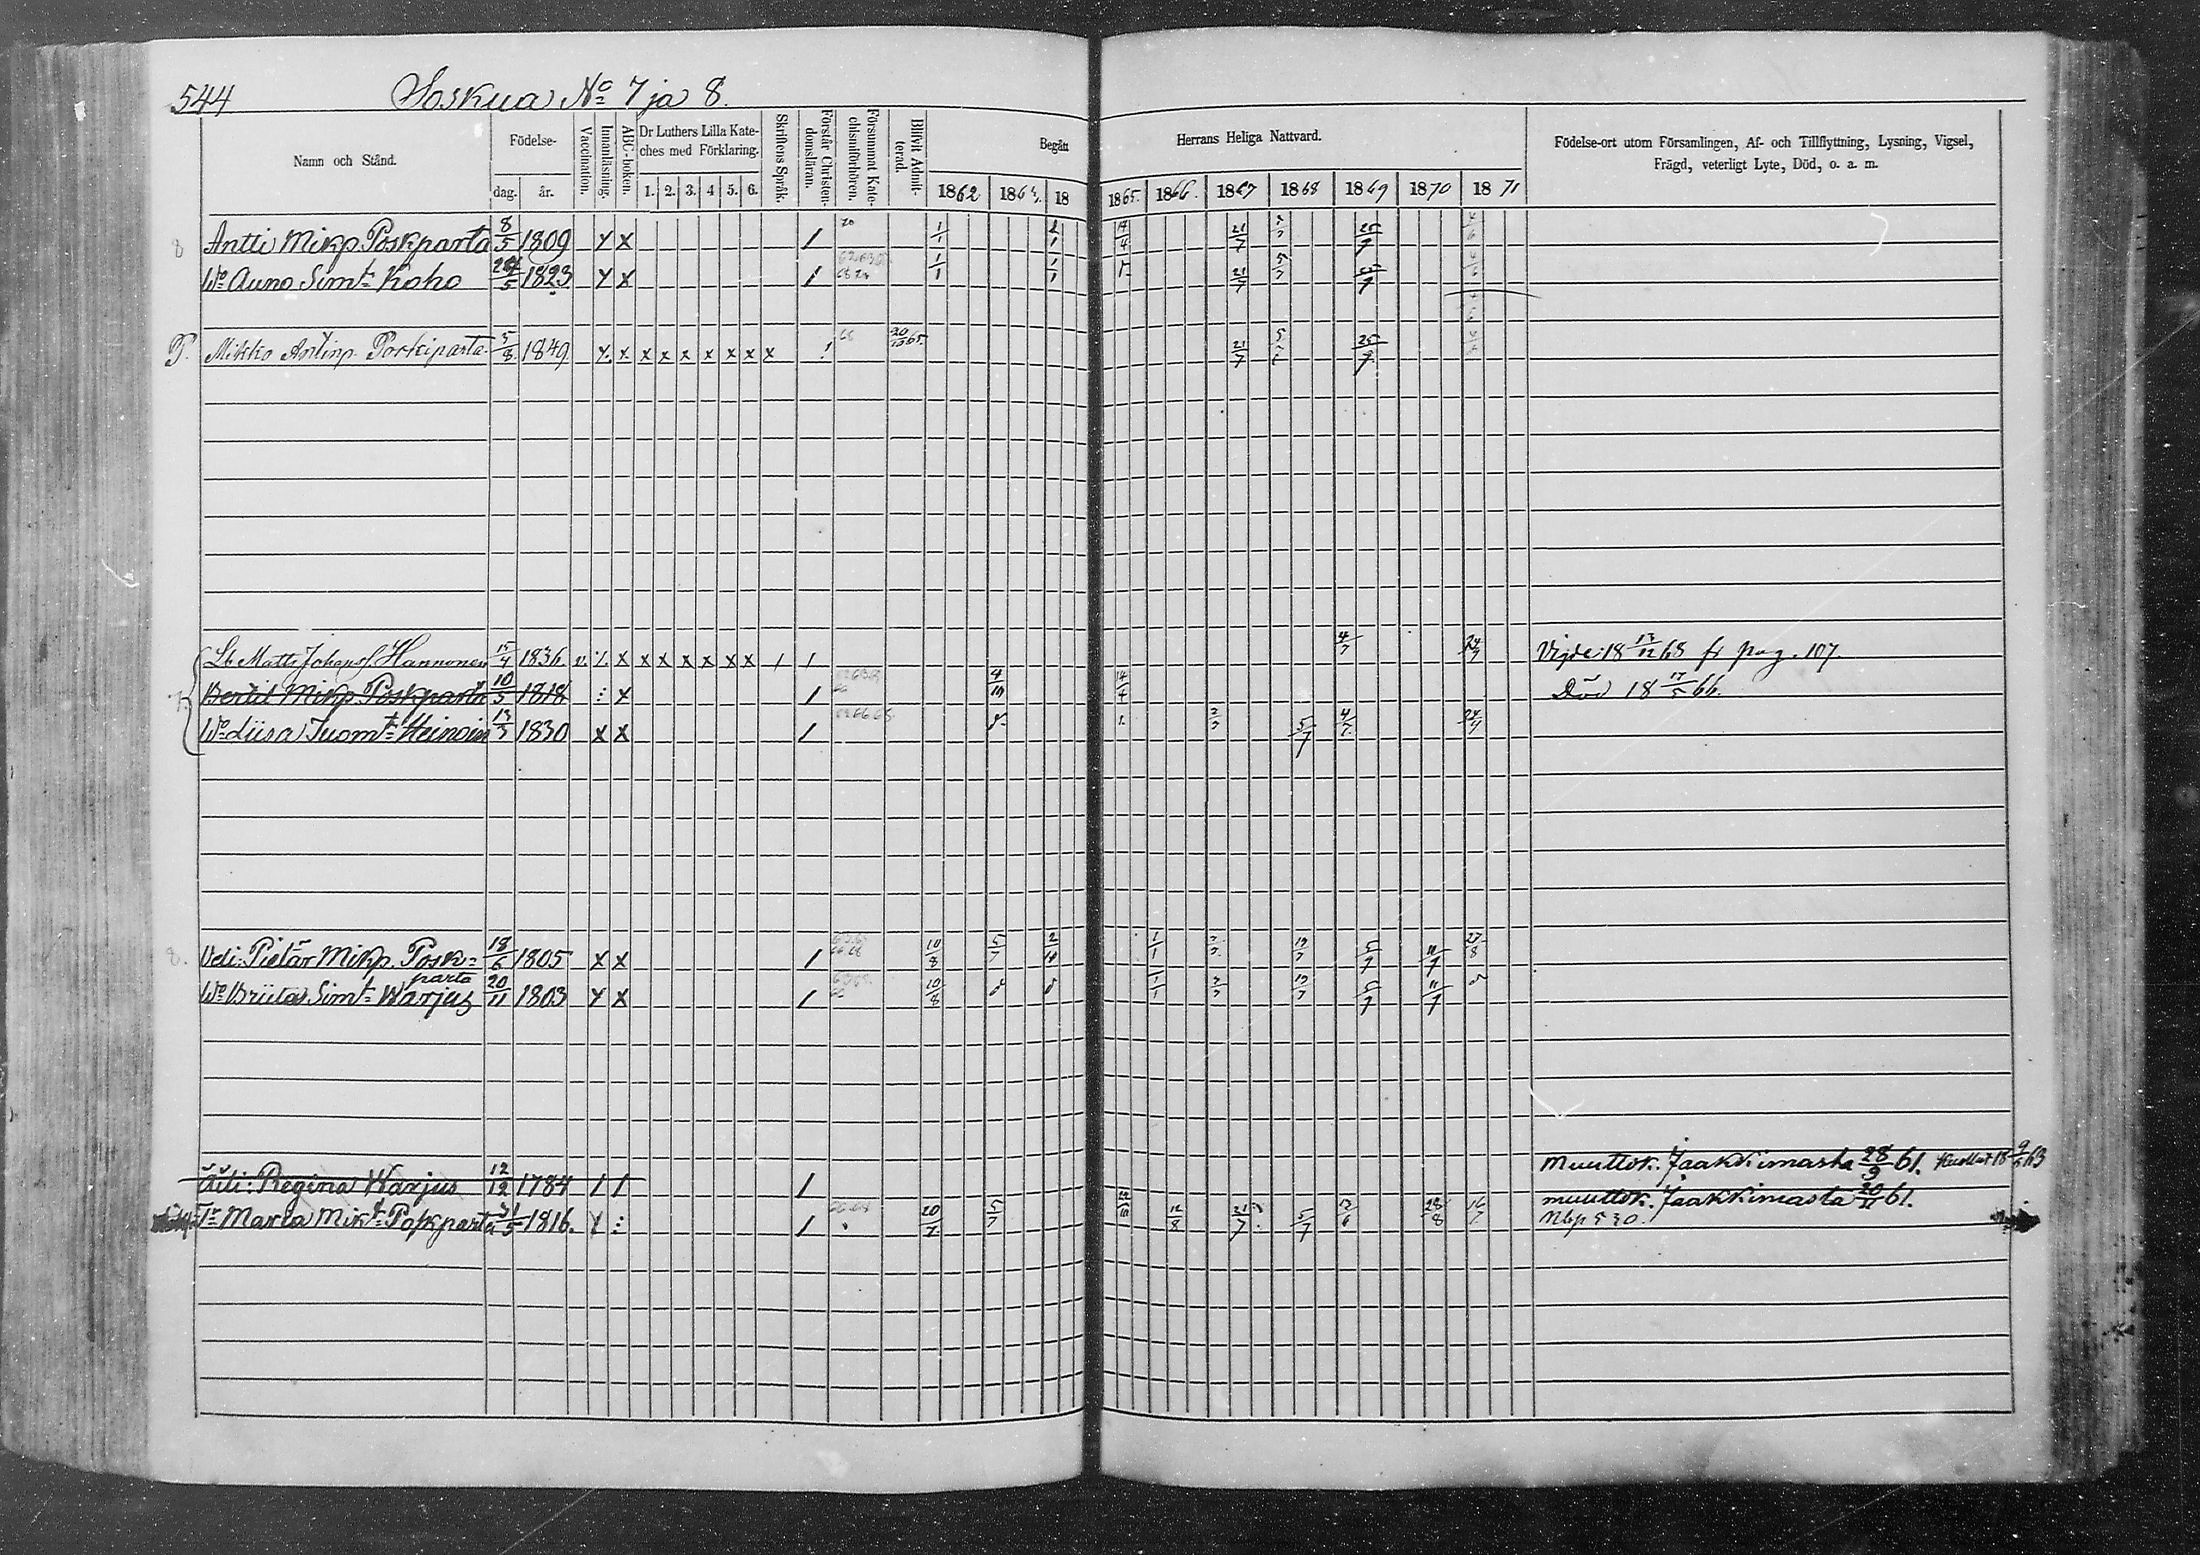 544 Soskua No 7 ja 8.
Namn och Stånd. Födelse- dag. år. Vaccination. Innanläsning. ABC-boken. Dr Luthers Lilla Kateches med Förklaring. 1. 2. 3. 4 5. 6. Skriftens Språk. Förstår Christendomsläran. Försummat Katechismiförhören. Blifvit Admitterad. Begått Herrans Heliga Nattvard. Födelse-ort utom Församlingen, Af- och Tillflyttning, Lysning, Vigsel, Frägd, veterligt Lyte, Död, o. a. m.
1862 186 18 1865. 1866. 1867 1868 1869 1870 1871
8 Antti Mikp. Poskparta 8/5 1809 x x / 70 1/1 14/4 21/7 25/7
Wo Auno Simt. Koho 5 1823 x x / 1/1 1/1 21/7 5/7
P. Mikko Antinp. Poskiparta 5/8 1849 x x x x x x x x x 21/7 25/7
Matts Johansf. Hannonen 15/4 1836 v. x x x x x x x / / 4/7 24/7 Vigde 18 13/12 68 fr pag. 107.
Bertil Mikp. Poskparta 10/5 1818 x / 4/10 14/4 Död 18 17/5 66.
Wo Liisa Tuomt. Heinoin 13/3 1830 x x / 5/7 4/7 24/7
8. Veli: Pietar Mikp. Posk=parta 18/6 1805 x x / 10/8 5/7 1/1 19/7 5/7 11/7 27/8
Wo Briita Simt. Warjus 20/11 1803 x x / 10/8 1/1 19/7 5/7 11/7
äiti: Regina Warjus 12/12 1784 / / / Muuttok. Jaakkimasta 28/9 61. Kuollut 18 9/6 63
Maria Mikt. Poskparta 31/5 1816. / 20/7 5/7 12/8 21/7 5/7 28/8 16/7 muuttok. Jaakkimasta 61.
Nbp 530.